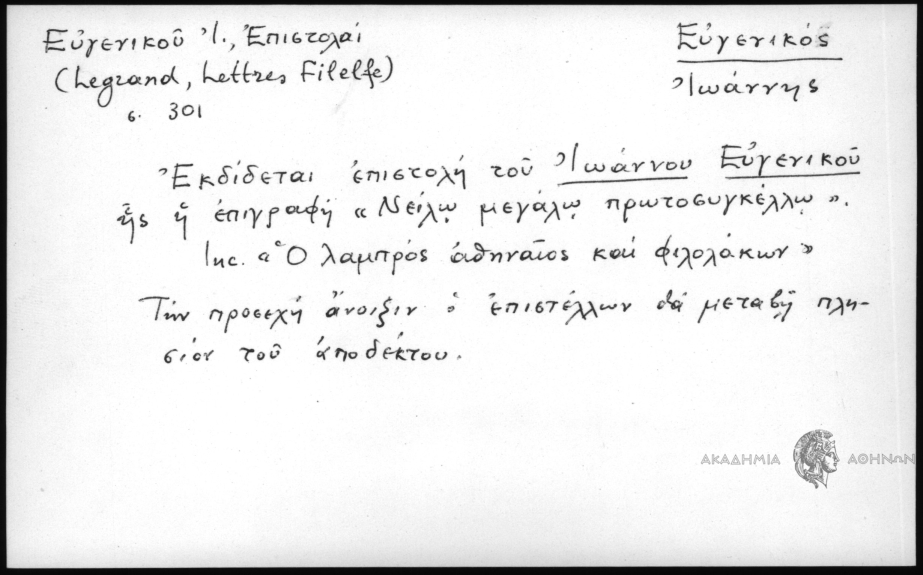 Εὐγενικοῦ Ἰ., Ἐπιστολαί
(Legrand, Lettres Filelfe)
σ. 301
Εὐγενικός
Ἰωάννης
Ἐκδίδεται ἐπιστολή τοῦ Ἰωάννου Εὐγενικοῦ
ἧς ἡ ἐπιγραφή « Νείλῳ μεγάλῳ πρωτοσυγκέλλῳ ».
Inc. « Ὁ λαμπρός ἀθηναῖος καί φιλολάκων »
Τήν προσεχῆ ἄνοιξιν ὁ ἐπιστέλλων θά μεταβῇ πλη-
σίον τοῦ ἀποδέκτου.
ΑΚΑΔΗΜΙΑ ΑΘΗΝΩΝ